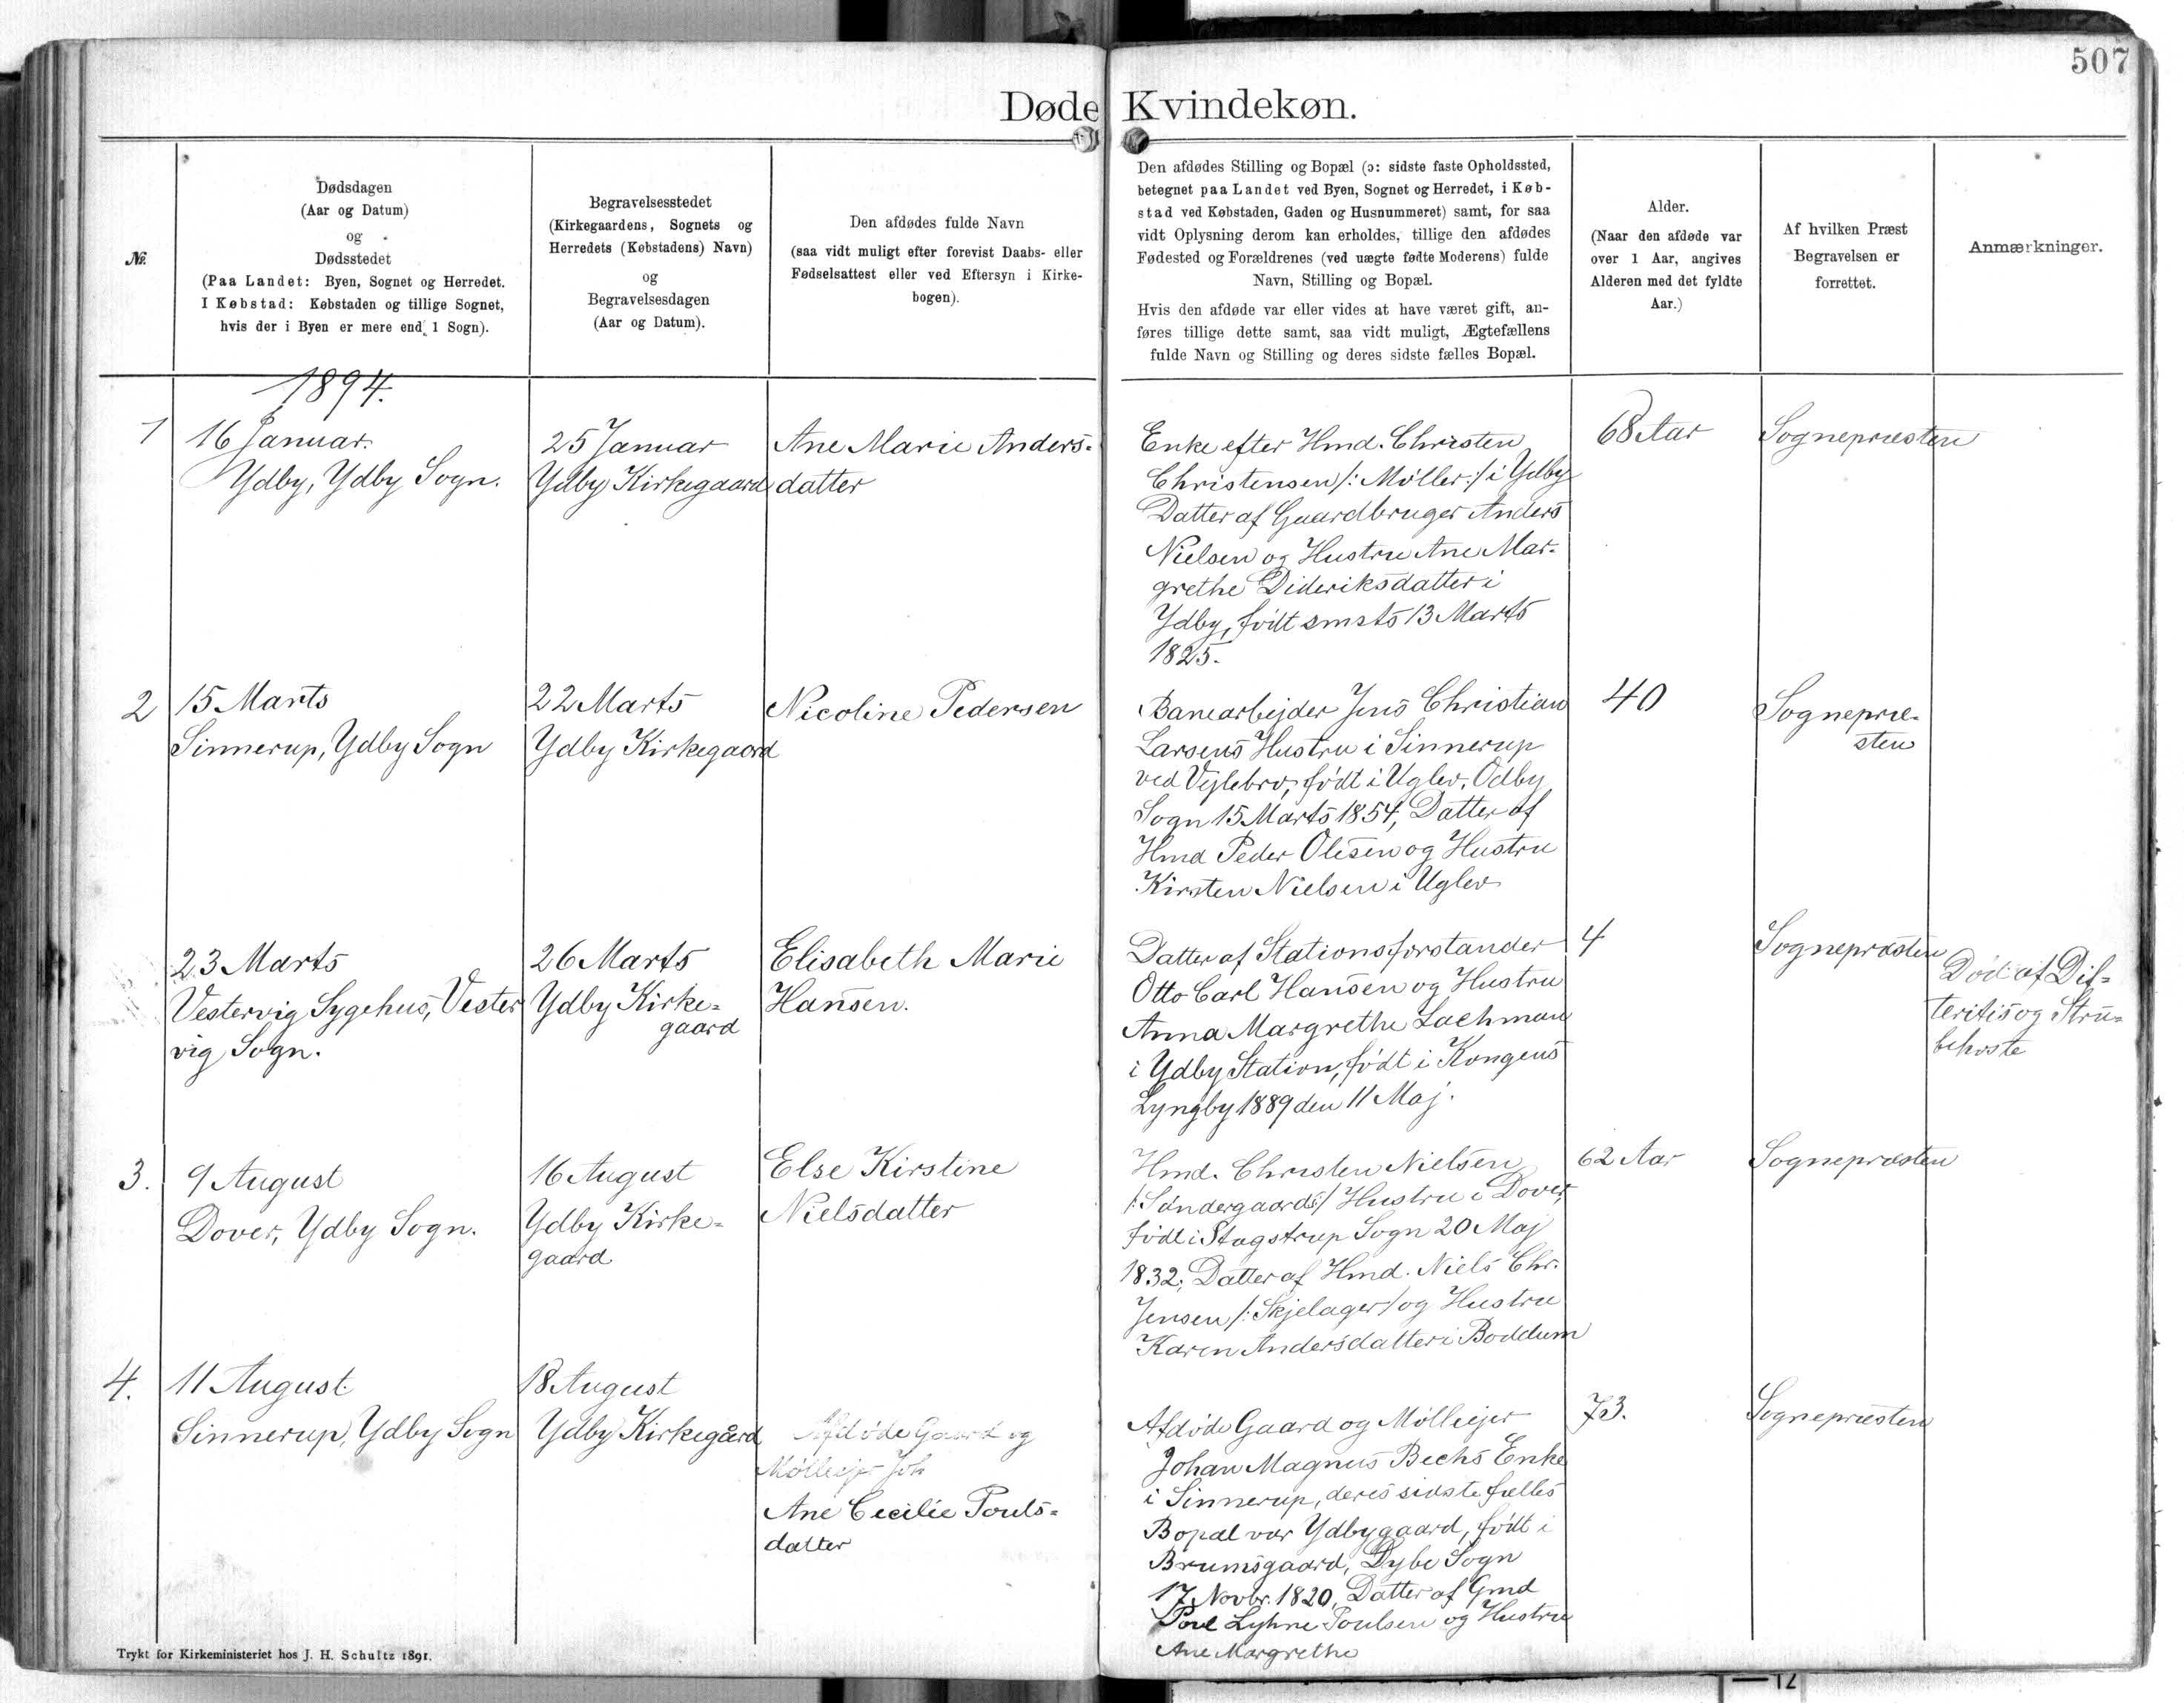 507
Døde Kvindekøn.
№.
Dødsdagen
(Aar og Datum)
og
Dødsstedet
(Paa Landet: Byen, Sognet og Herredet.
I Købstad: Købstaden og tillige Sognet,
hvis der i Byen er mere end 1 Sogn).
Begravelsesstedet
(Kirkegaardens, Sognets og
Herredets (Købstadens) Navn)
og
Begravelsesdagen
(Aar og Datum).
Den afdødes fulde Navn
(saa vidt muligt efter forevist Daabs- eller
Fødselsattest eller ved Eftersyn i Kirke-
bogen).
Den afdødes Stilling og Bopæl (ɔ: sidste faste Opholdssted,
betegnet paa Landet ved Byen, Sognet og Herredet, i Køb-
stad ved Købstaden, Gaden og Husnummeret) samt, for saa
vidt Oplysning derom kan erholdes, tillige den afdødes
Fødested og Forældrenes (ved uægte fødte Moderens) fulde
Navn, Stilling og Bopæl.
Hvis den afdøde var eller vides at have været gift, an-
føres tillige dette samt, saa vidt muligt, Ægtefællens
fulde Navn og Stilling og deres sidste fælles Bopæl.
Alder.
(Naar den afdøde var
over 1 Aar, angives
Alderen med det fyldte
Aar.)
Af hvilken Præst
Begravelsen er
forrettet.
Anmærkninger.
1894.
1
16 Januar.
Ydby, Ydby Sogn.
25 Januar
Ydby Kirkegaard
Ane Marie Anders-
datter
Enke efter Hmd. Christen
Christensen /: Møller :/ i Ydby
Datter af Gaardbruger Anders
Nielsen og Hustru Ane Mar-
grethe Dideriksdatter i
Ydby, født smsts 13 Marts
1825.
68 Aar
Sognepræsten
2
15 Marts
Sinnerup, Ydby Sogn
22 Marts
Ydby Kirkegaard
Nicoline Pedersen
Banearbejder Jens Christian
Larsens Hustru i Sinnerup
ved Vejlebro, født i Uglev, Odby
Sogn 15 Marts 1854, Datter af
Hmd Peder Olesen og Hustru
Kirsten Nielsen i Uglev
40
Sognepræ-
sten
23 Marts
Vestervig Sygehus, Vester
vig Sogn.
26 Marts
Ydby Kirke-
gaard
Elisabeth Marie
Hansen.
Datter af Stationsforstander
Otto Carl Hansen og Hustru
Anna Margrethe Lachman
i Ydby Station, født i Kongens
Lyngby 1889 den 11 Maj.
4
Sognepræsten
Død af Dif-
teritis og Stru-
behoste
3.
9 August
Dover, Ydby Sogn.
16 August
Ydby Kirke-
gaard
Else Kirstine
Nielsdatter
Hmd. Christen Nielsen
/: Søndergaards :/ Hustru i Dover,
født i Stagstrup Sogn 20 Maj
1832, Datter af Hmd. Niels Chr.
Jensen /: Skjelager / og Hustru
Karen Andersdatter i Boddum
62 Aar
Sognepræsten
4.
11 August
Sinnerup, Ydby Sogn
18 August
Ydby Kirkegård
Afdøde Gaard og
Mølleejer Joh
Ane Cecilie Pouls-
datter
Afdøde Gaard og Mølleejer
Johan Magnus Bechs Enke
i Sinnerup, deres sidste fælles
Bopæl var Ydbygaard, født i
Brumsgaard, Dybe Sogn
17 Novbr. 1820, Datter af Gmd
Poul Lyhne Poulsen og Hustru
Ane Margrethe
73.
Sognepræsten
Trykt for Kirkeministeriet hos J. H. Schultz 1891.
12